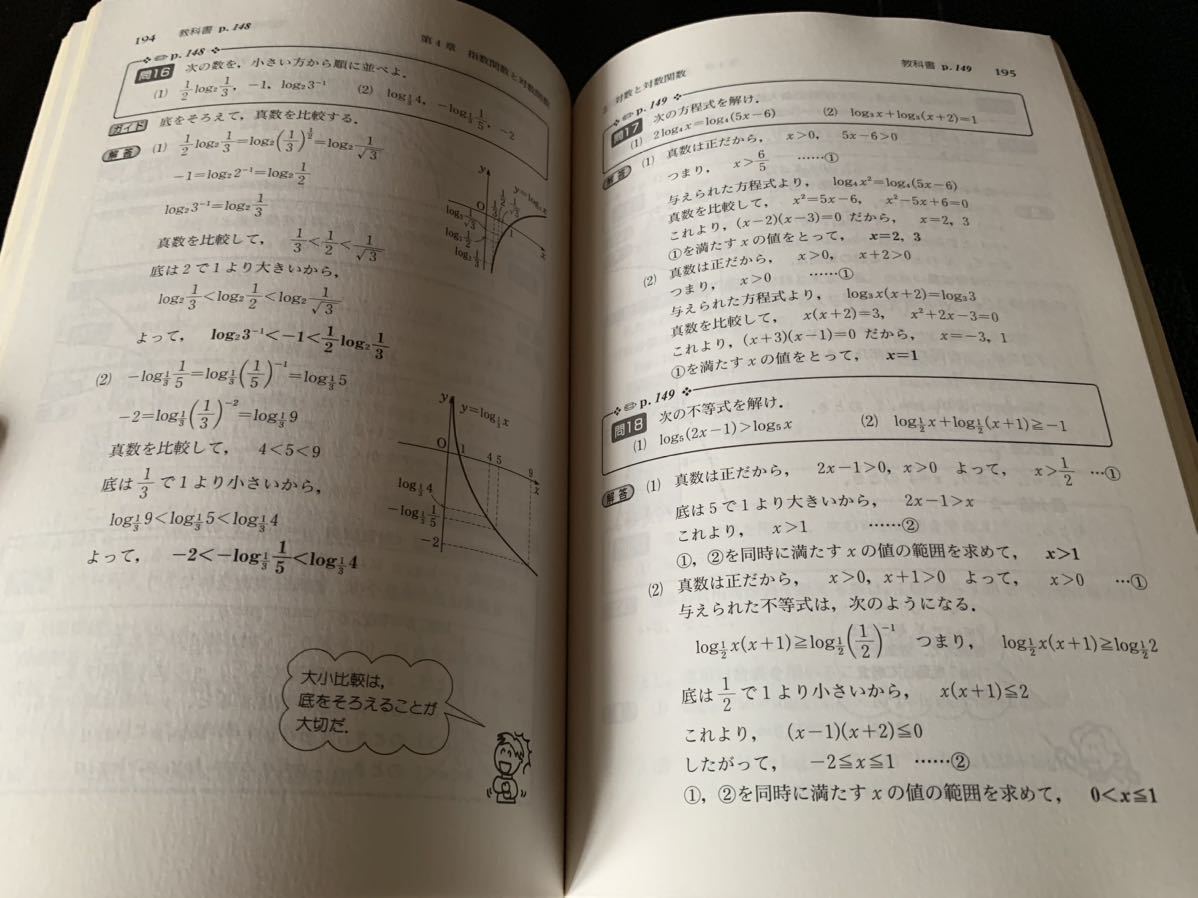 194 教科書 p.148 第4章 指数関数と対数関数
p.148
問16 次の数を，小さい方から順に並べよ．
(1) 1/2 log₂ 1/3, −1, log₂3⁻¹ (2) log_{1/3}4, −log_{1/3} 1/5, −2
ガイド 底をそろえて，真数を比較する．
解答 (1) 1/2 log₂ 1/3 = log₂(1/3)^{1/2} = log₂ 1/√3
−1=log₂2⁻¹=log₂ 1/2
log₂3⁻¹=log₂ 1/3
真数を比較して， 1/3 < 1/2 < 1/√3
底は2で1より大きいから，
log₂ 1/3 < log₂ 1/2 < log₂ 1/√3
よって， log₂3⁻¹ < −1 < 1/2 log₂ 1/3
y
y=log₂x
O
1/3
1/2
1/√3
1
x
log₂ 1/√3
log₂ 1/2
log₂ 1/3
(2) −log_{1/3} 1/5 = log_{1/3}(1/5)⁻¹ = log_{1/3}5
−2=log_{1/3}(1/3)⁻²=log_{1/3}9
真数を比較して， 4<5<9
底は 1/3 で1より小さいから，
log_{1/3}9<log_{1/3}5<log_{1/3}4
よって， −2<−log_{1/3} 1/5 <log_{1/3}4
y
y=log_{1/3}x
O
1
4 5
9
x
log_{1/3}4
−log_{1/3} 1/5
−2
大小比較は，
底をそろえることが
大切だ．
対数と対数関数 教科書 p.149 195
p.149
問17 次の方程式を解け．
(1) 2log₄x=log₄(5x−6) (2) log₃x+log₃(x+2)=1
解答 (1) 真数は正だから， x>0, 5x−6>0
つまり， x> 6/5 ……①
与えられた方程式より， log₄x²=log₄(5x−6)
真数を比較して， x²=5x−6, x²−5x+6=0
これより，(x−2)(x−3)=0 だから， x=2, 3
①を満たすxの値をとって， x=2, 3
(2) 真数は正だから， x>0, x+2>0
つまり， x>0 ……①
与えられた方程式より， log₃x(x+2)=log₃3
真数を比較して， x(x+2)=3, x²+2x−3=0
これより，(x+3)(x−1)=0 だから， x=−3, 1
①を満たすxの値をとって， x=1
p.149
問18 次の不等式を解け．
(1) log₅(2x−1)>log₅x (2) log_{1/2}x+log_{1/2}(x+1)≧−1
解答 (1) 真数は正だから， 2x−1>0, x>0 よって， x> 1/2 …①
底は5で1より大きいから， 2x−1>x
これより， x>1 ……②
①，②を同時に満たすxの値の範囲を求めて， x>1
(2) 真数は正だから， x>0, x+1>0 よって， x>0 …①
与えられた不等式は，次のようになる．
log_{1/2}x(x+1)≧log_{1/2}(1/2)⁻¹ つまり， log_{1/2}x(x+1)≧log_{1/2}2
底は 1/2 で1より小さいから， x(x+1)≦2
これより， (x−1)(x+2)≦0
したがって， −2≦x≦1 ……②
①，②を同時に満たすxの値の範囲を求めて， 0<x≦1